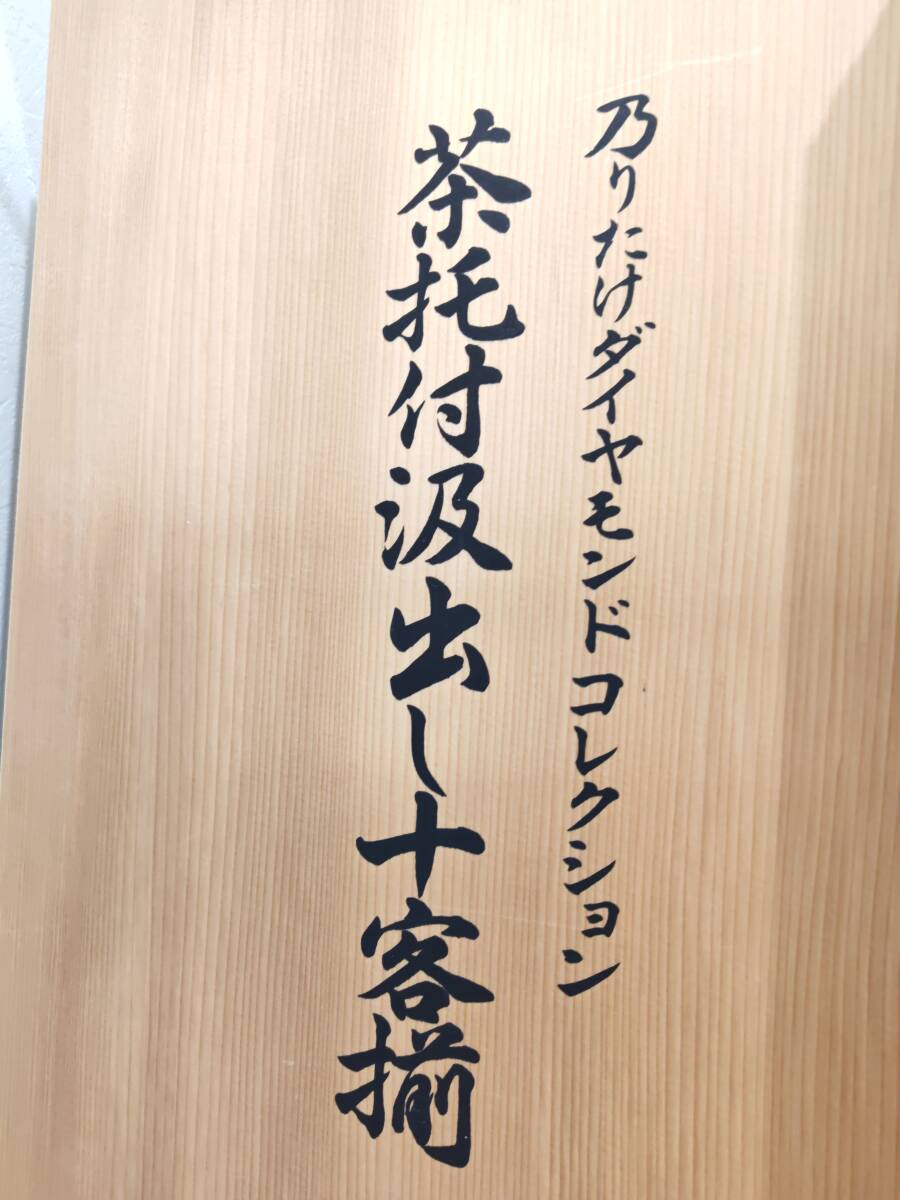 乃りたけダイヤモンドコレクション
茶托付汲出し十客揃